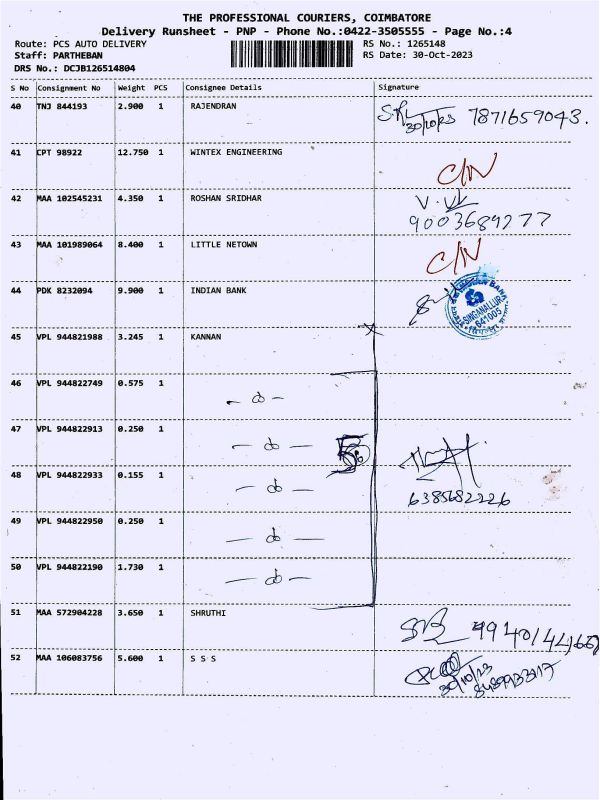 THE PROFESSIONAL COURIERS, COIMBATORE
Delivery Runsheet - PNP - Phone No.:0422-3505555 - Page No.:4
Route: PCS AUTO DELIVERY RS No.: 1265148
Staff: PARTHEBAN RS Date: 30-Oct-2023
DRS No.: DCJB126514804
S No Consignment No Weight PCS Consignee Details Signature
40 TNJ 844193 2.900 1 RAJENDRAN 30/10/23 7871659043.
41 CPT 98922 12.750 1 WINTEX ENGINEERING C/N
42 MAA 102545231 4.350 1 ROSHAN SRIDHAR
9003689277
43 MAA 101989064 8.400 1 LITTLE NETOWN C/N
44 PDK 8232094 9.900 1 INDIAN BANK
SINGANALLUR
641005
45 VPL 944821988 3.245 1 KANNAN
46 VPL 944822749 0.575 1 - do -
47 VPL 944822913 0.250 1 - do -
48 VPL 944822933 0.155 1 - do -
6385682226
49 VPL 944822950 0.250 1 - do -
50 VPL 944822190 1.730 1 - do -
51 MAA 572904228 3.650 1 SHRUTHI
52 MAA 106083756 5.600 1 S S S
30/10/23